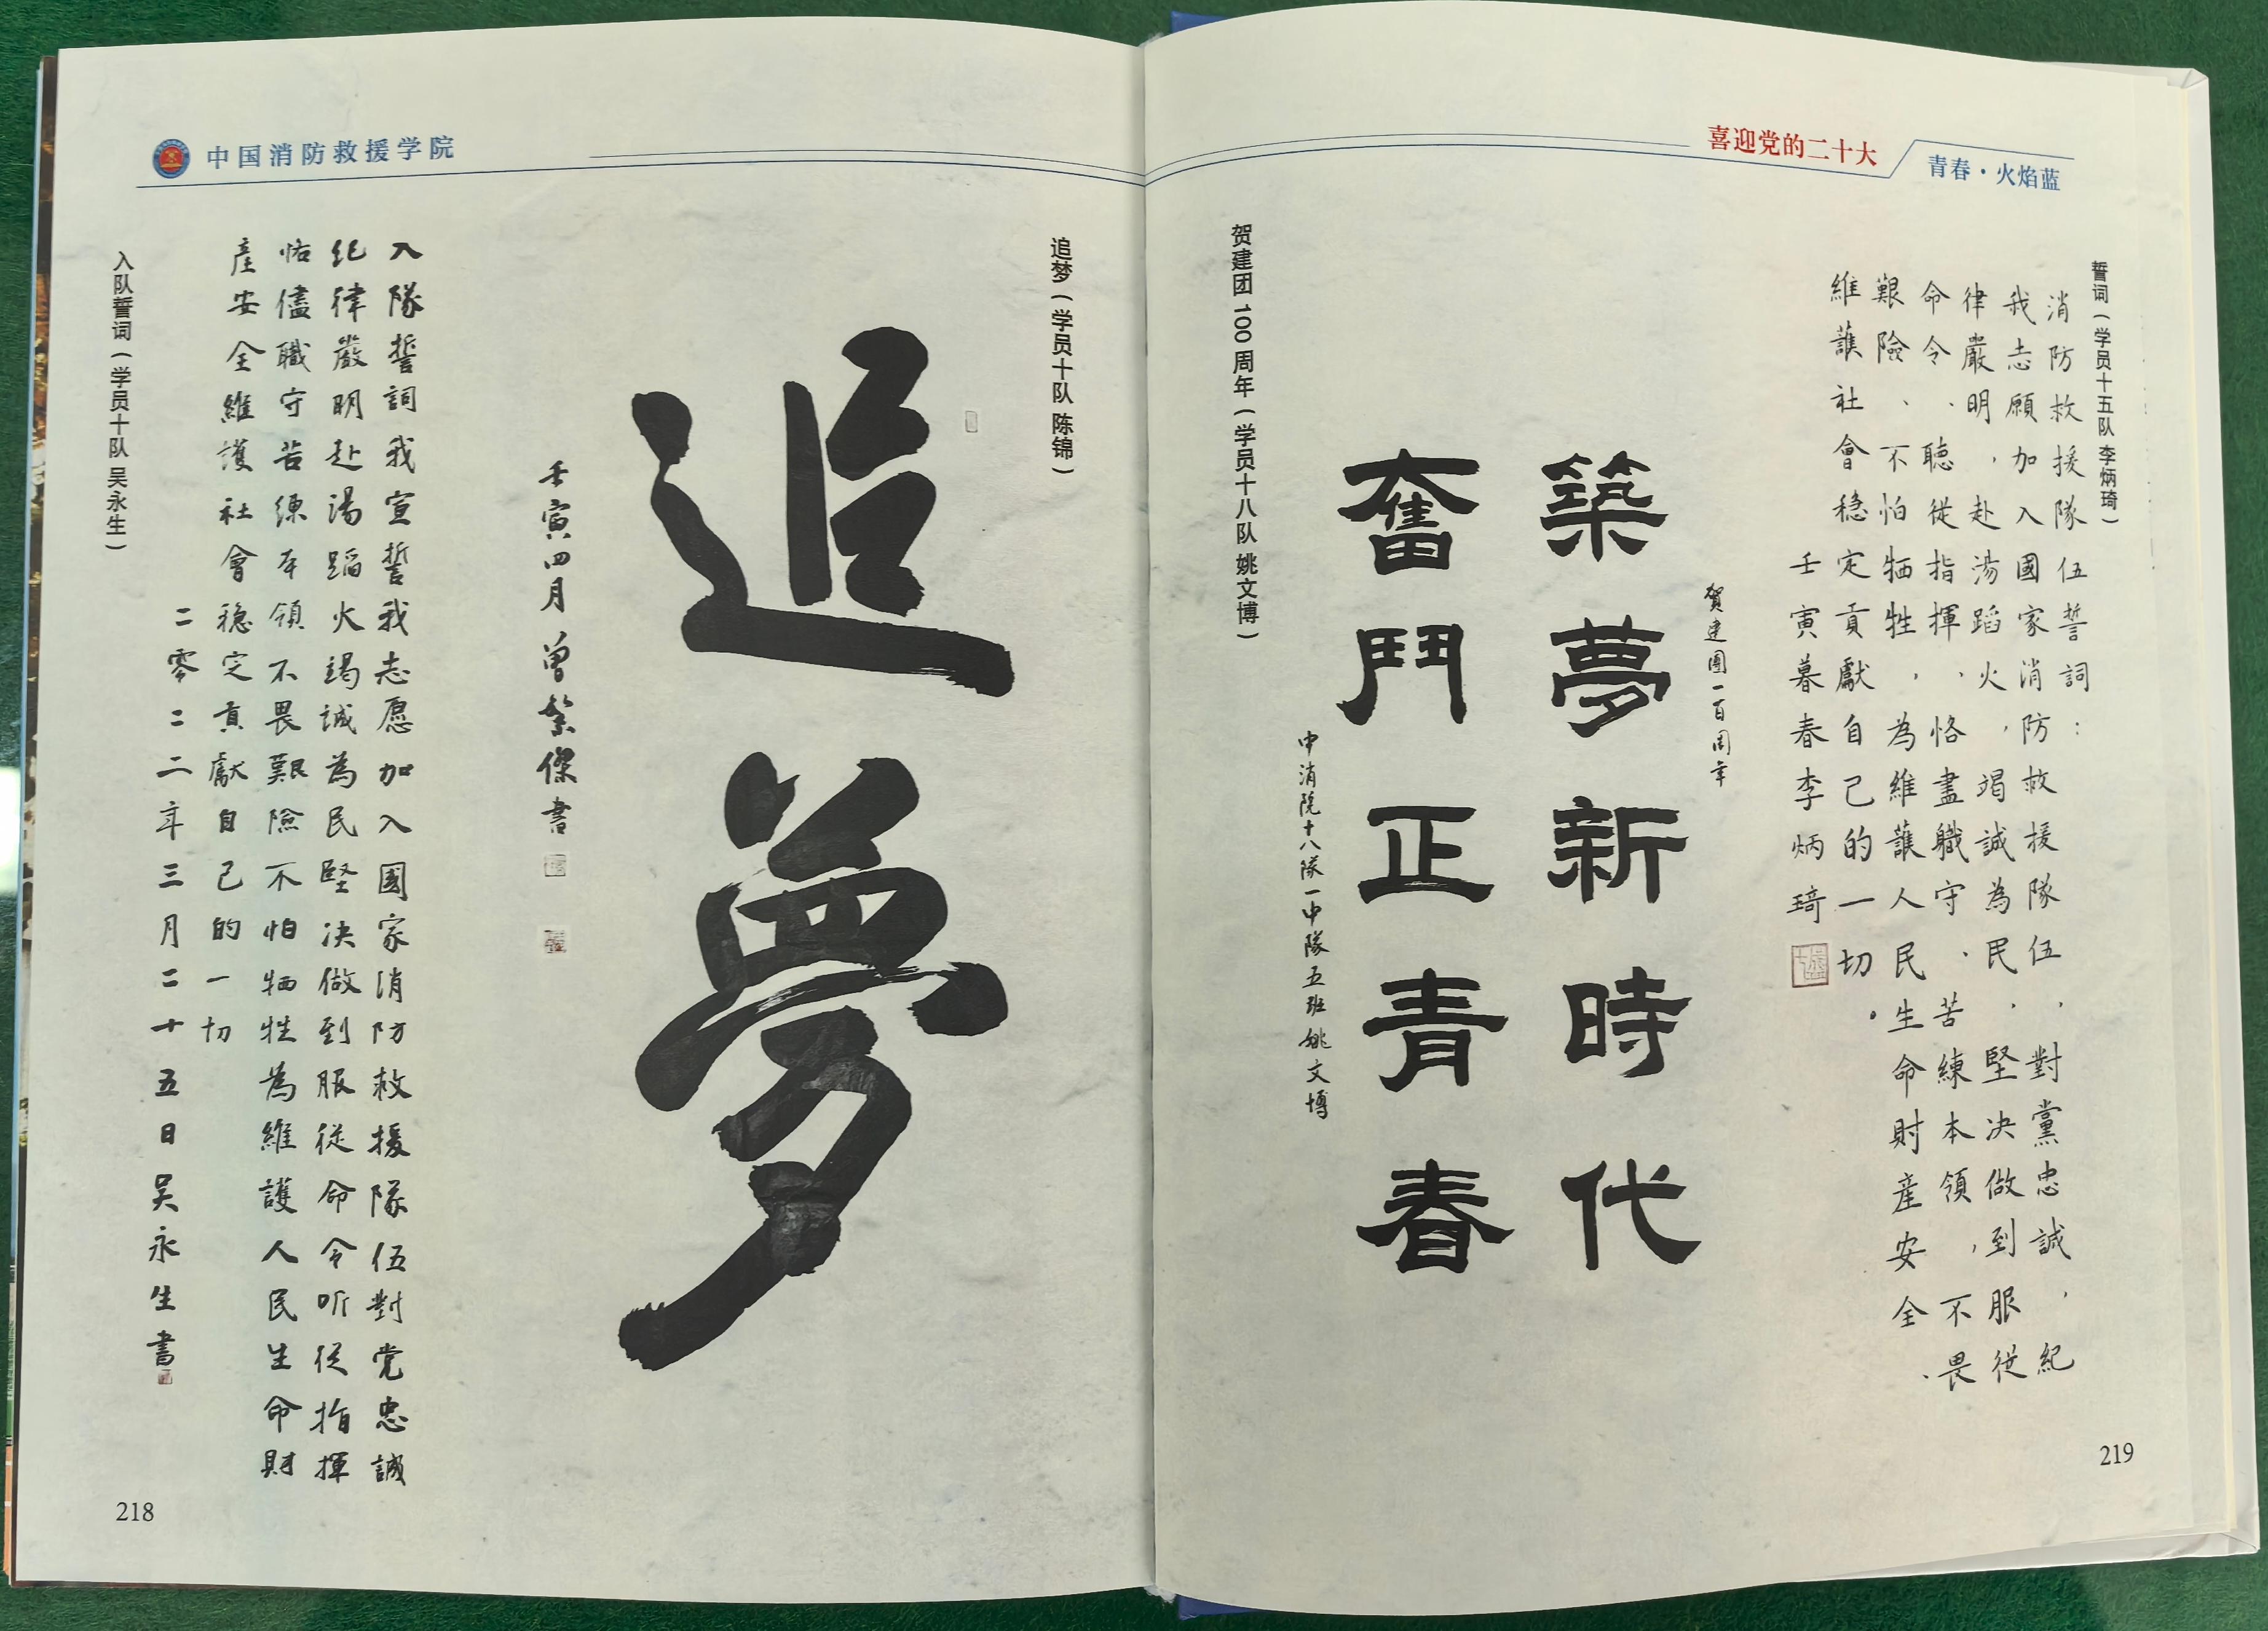 中国消防救援学院
追梦（学员十队 陈锦）
追夢
壬寅四月 曾繁傑書
入隊誓詞我宣誓我志愿加入國家消防救援隊伍對党忠誠
纪律嚴明赴湯蹈火竭誠為民堅决做到服從命令听従指揮
恪儘職守苦練本領不畏艱險不怕牺牲為維護人民生命財
産安全維護社會稳定貢獻自己的一切
二零二二年三月二十五日吴永生書
入队誓词（学员十队 吴永生）
218
喜迎党的二十大
青春·火焰蓝
誓词（学员十五队 李炳琦）
消防救援隊伍誓詞：
我志願加入國家消防救援隊伍，對黨忠誠，紀
律嚴明，赴湯蹈火，竭誠為民，堅决做到服從
命令、聽從指揮，恪盡職守、苦練本領，不畏
艱險、不怕牺牲，為維護人民生命財産安全、
維護社會稳定貢獻自己的一切。
壬寅暮春李炳琦
賀建團一百周年
築夢新時代
奮鬥正青春
中消院十八隊一中隊五班姚文博
贺建团 100 周年（学员十八队 姚文博）
219